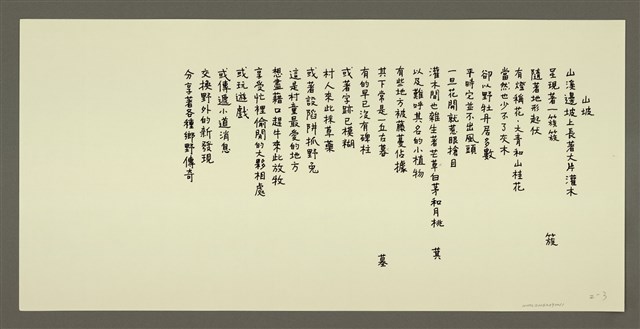 山坡
山溪邊坡上長著大片灌木
呈現著一簇簇
簇
隨著地形起伏
有燈稱花、文青和山桂花
當然也少不了灰木
卻以野牡丹居多數
平時它並不出風頭
一旦花開就惹眼搶目
灌木間也雜生著芒草白茅和月桃
萁
以及難呼其名的小植物
有些地方被藤蔓佔據
其下常是一丘古墓
墓
有的早已沒有碑柱
或著字跡已模糊
村人來此採草藥
或著設陷阱抓野兔
這是村童最愛的地方
想盡藉口趕牛來此放牧
享受忙裡偷閒的大夥相處
或玩遊戲
或傳遞小道消息
交換野外的新發現
分享著各種鄉野傳奇
2-3